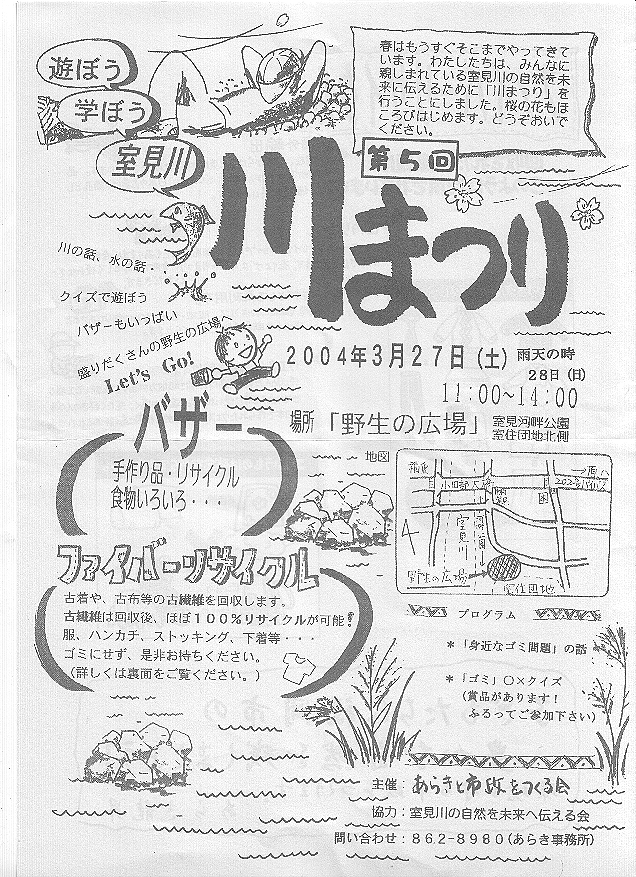 遊ぼう
学ぼう
室見川
春はもうすぐそこまでやってきて
います。わたしたちは、みんなに
親しまれている室見川の自然を未
来に伝えるために「川まつり」を
行うことにしました。桜の花もほ
ころびはじめます。どうぞおいで
ください。
第5回
川まつり
川の話、水の話・・
クイズで遊ぼう
バザーもいっぱい
盛りだくさんの野生の広場へ
Let's Go!
2004年3月27日(土) 雨天の時
28日(日)
11:00~14:00
場所「野生の広場」室見河畔公園
室住団地北側
バザー
手作り品・リサイクル
食物いろいろ・・・
地図
室見川
野生の広場
室住団地
ファイバーリサイクル
古着や、古布等の古繊維を回収します。
古繊維は回収後、ほぼ100%リサイクルが可能!
服、ハンカチ、ストッキング、下着等・・・
ゴミにせず、是非お持ちください。
(詳しくは裏面をご覧ください。)
プログラム
*「身近なゴミ問題」の話
*「ゴミ」○×クイズ
(賞品があります!
ふるってご参加下さい)
主催:あらきと市政をつくる会
協力:室見川の自然を未来へ伝える会
問い合わせ:862-8980(あらき事務所)